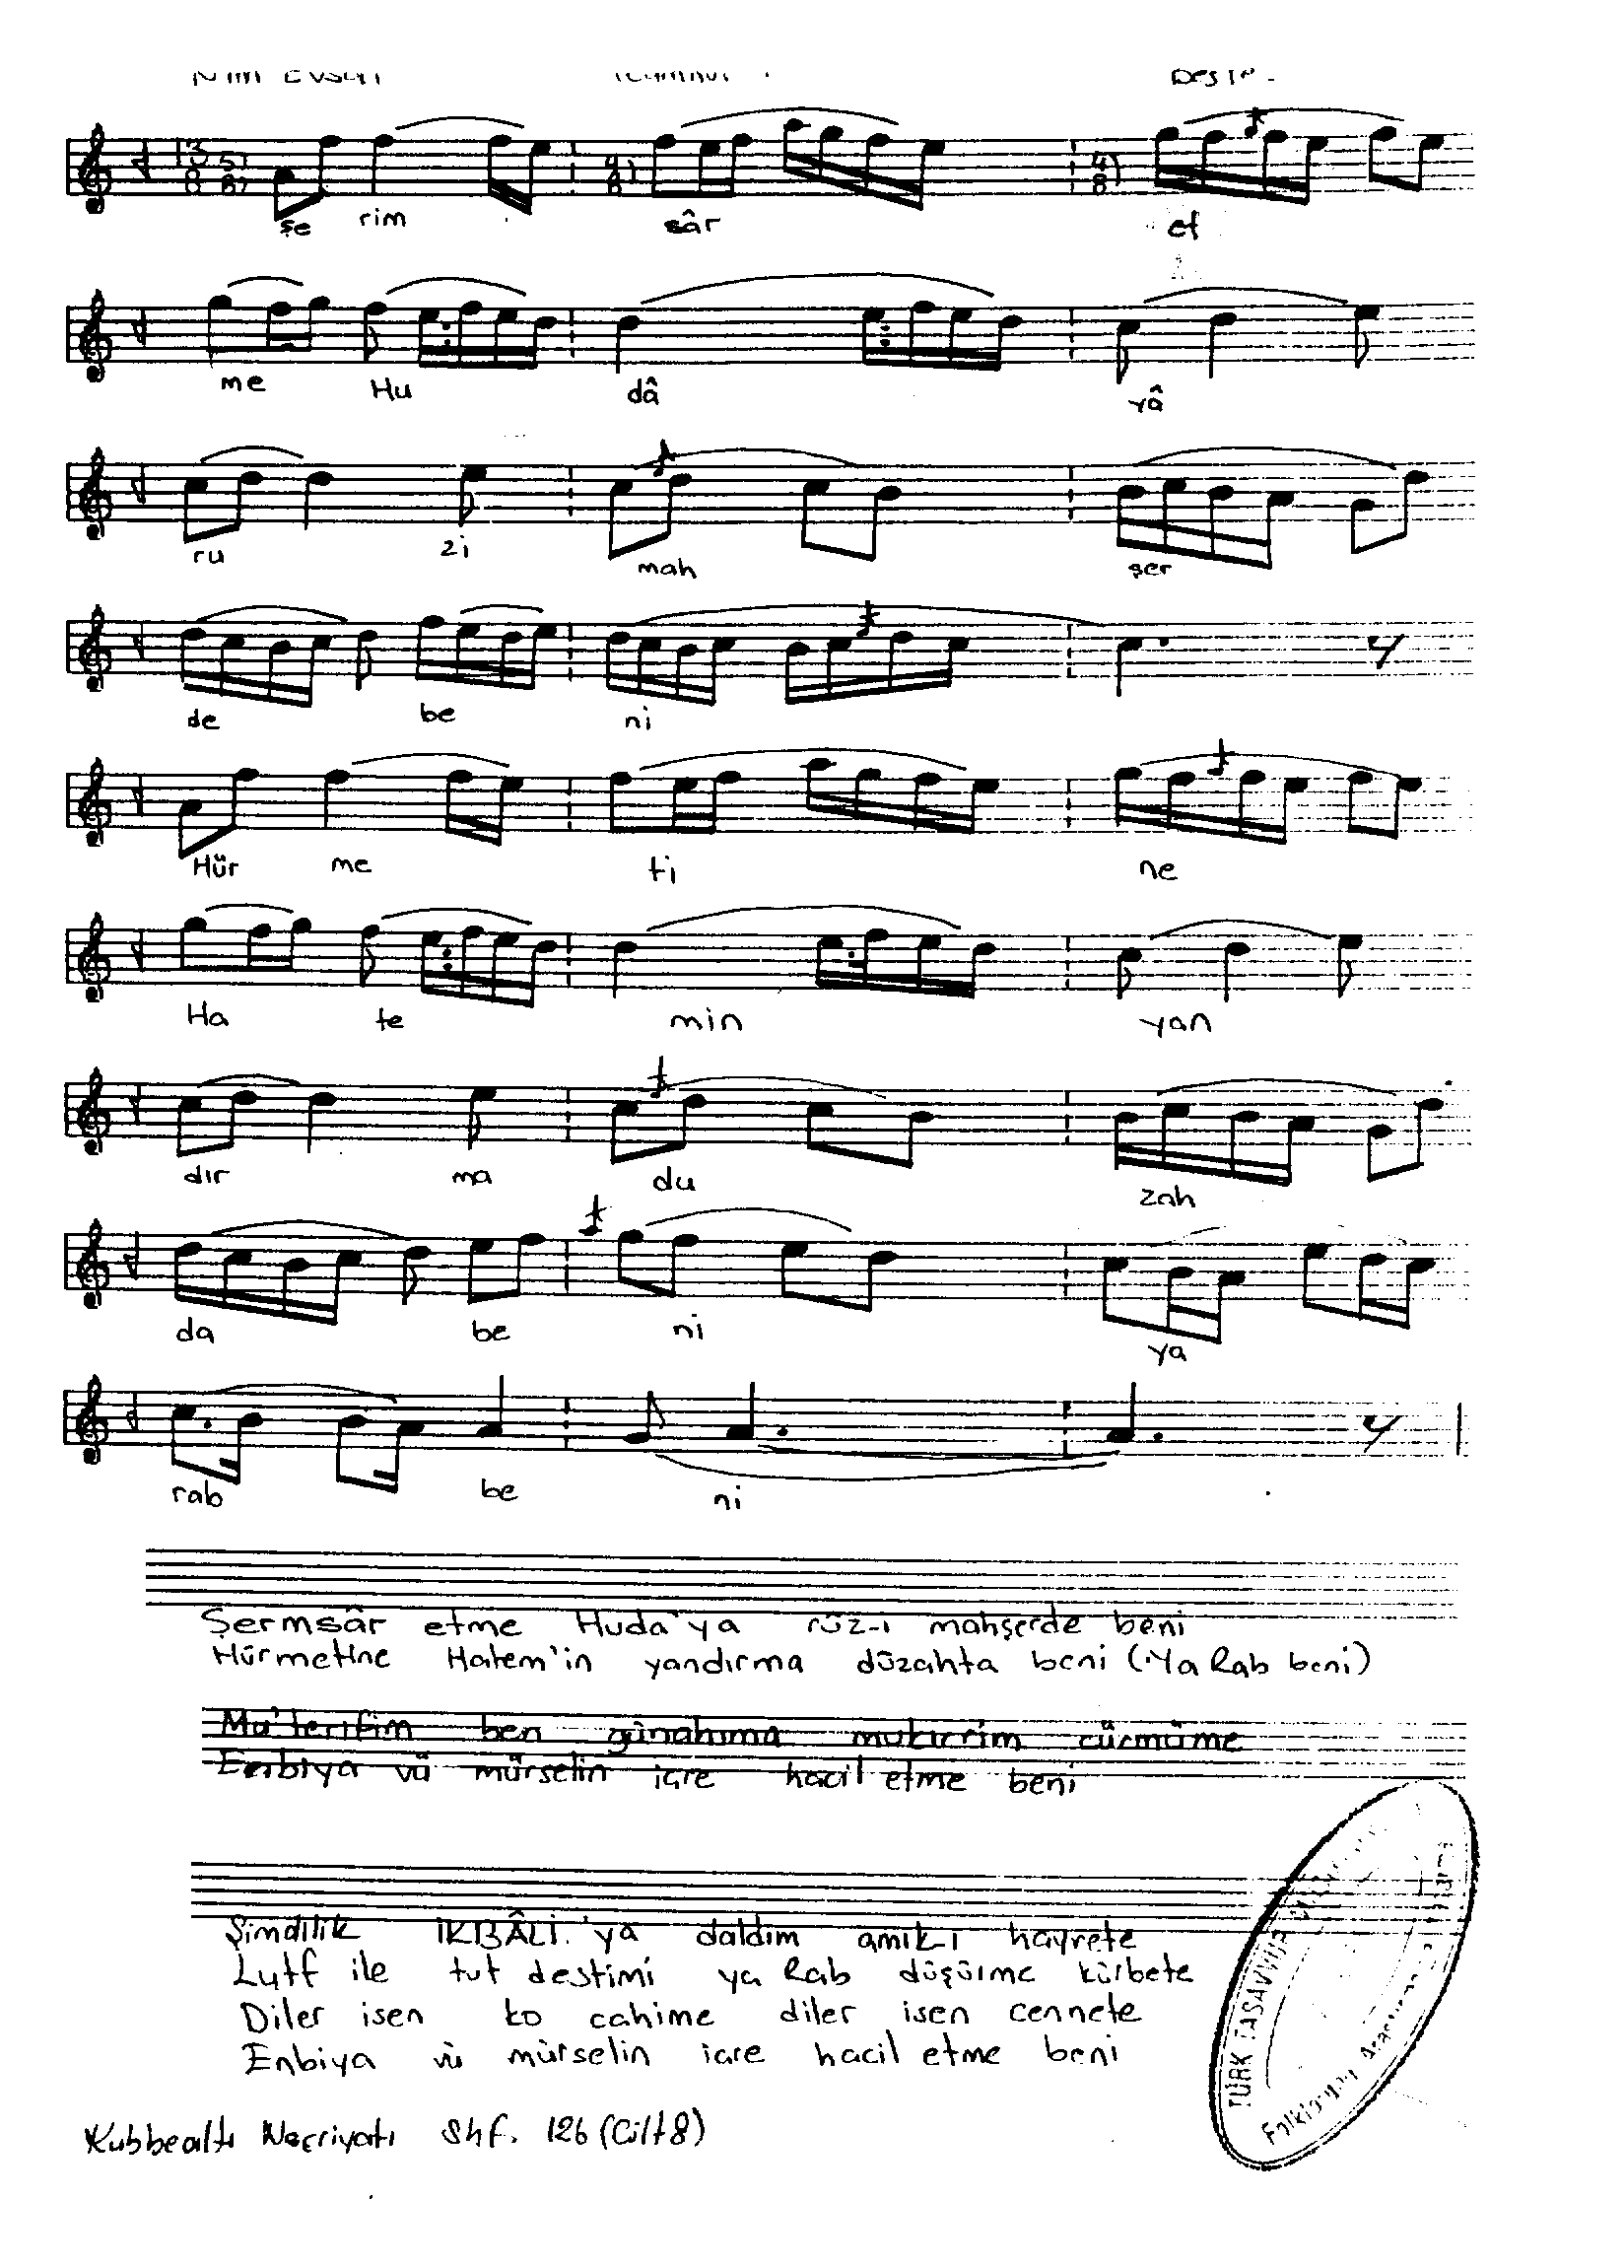 3 5) 4) 4)
8 8) 8 8)
şe rim sâr et
me Hu dâ yâ
ru zi mah şer
de be ni
Hür me ti ne
Ha te min yan
dır ma du zah
da be ni ya
rab be ni
Şermsâr etme Huda'ya rûz-ı mahşerde beni
Hürmetine Hatem'in yandırma dûzahta beni (Ya Rab beni)
Mu'terifim ben günahıma mukırrim cürmüme
Enbiya vü mürselin içre hacil etme beni
Şimdilik İKBÂLİ'ya daldım amik-ı hayrete
Lutf ile tut destimi ya Rab düşürme kürbete
Diler isen ko cahime diler isen cennete
Enbiya vü mürselin içre hacil etme beni
Kubbealtı Neşriyatı Shf. 126 (Cilt 8)
TÜRK TASAVVUF